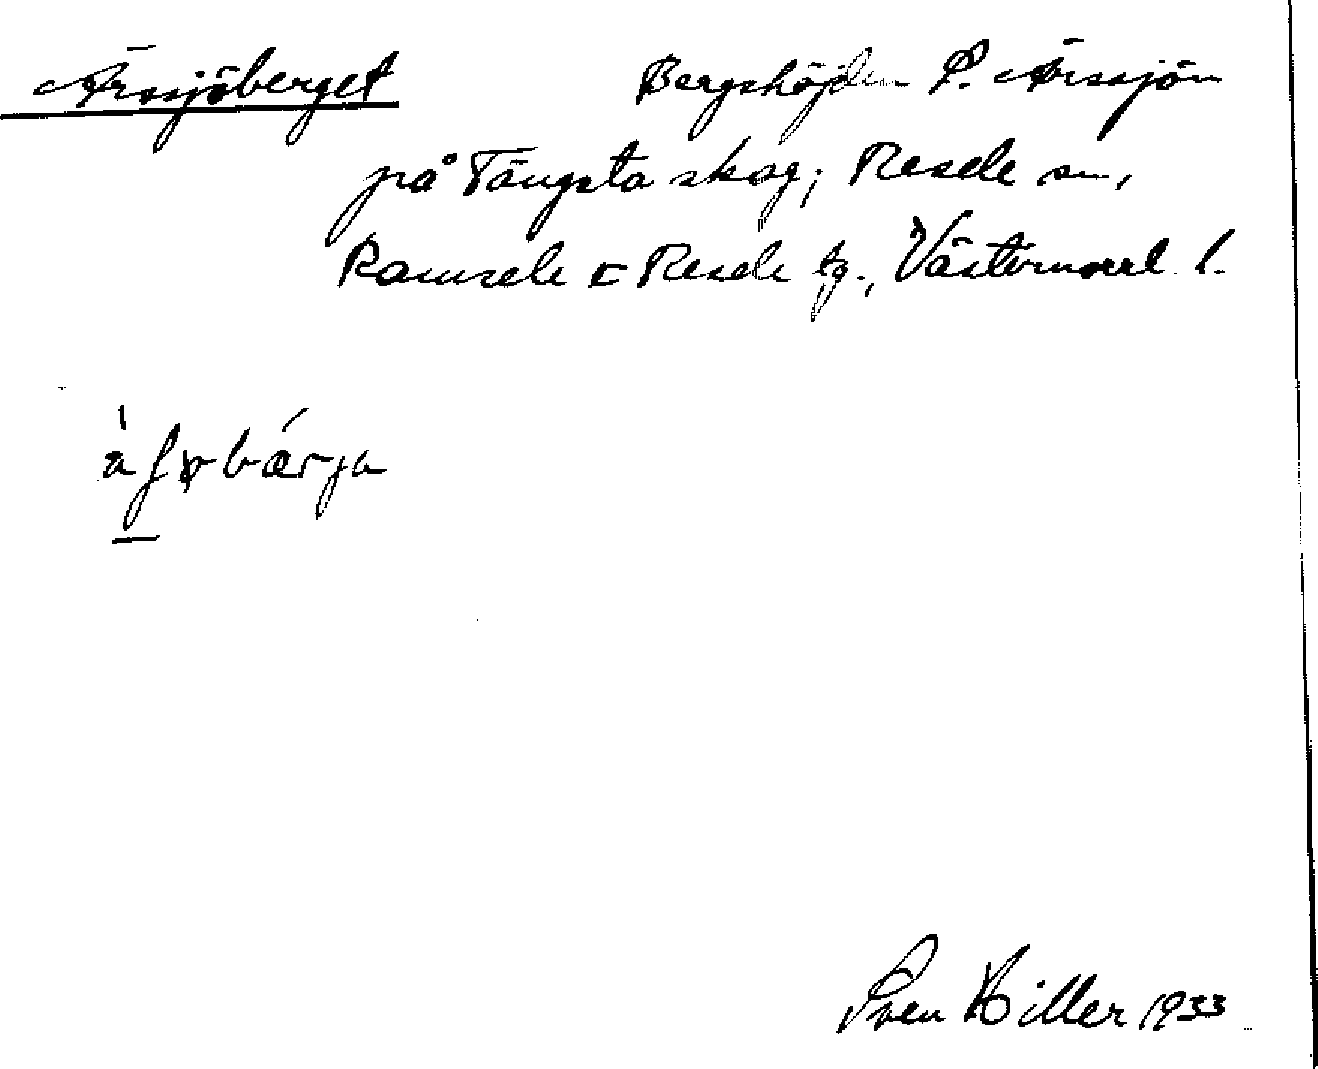 Ärssjöberget
Bergshöjden S. Ärssjön
på Tängsta skog; Resele sn,
Ramsele o Resele tg., Västernorrl. l.
Sven Hiller 1933